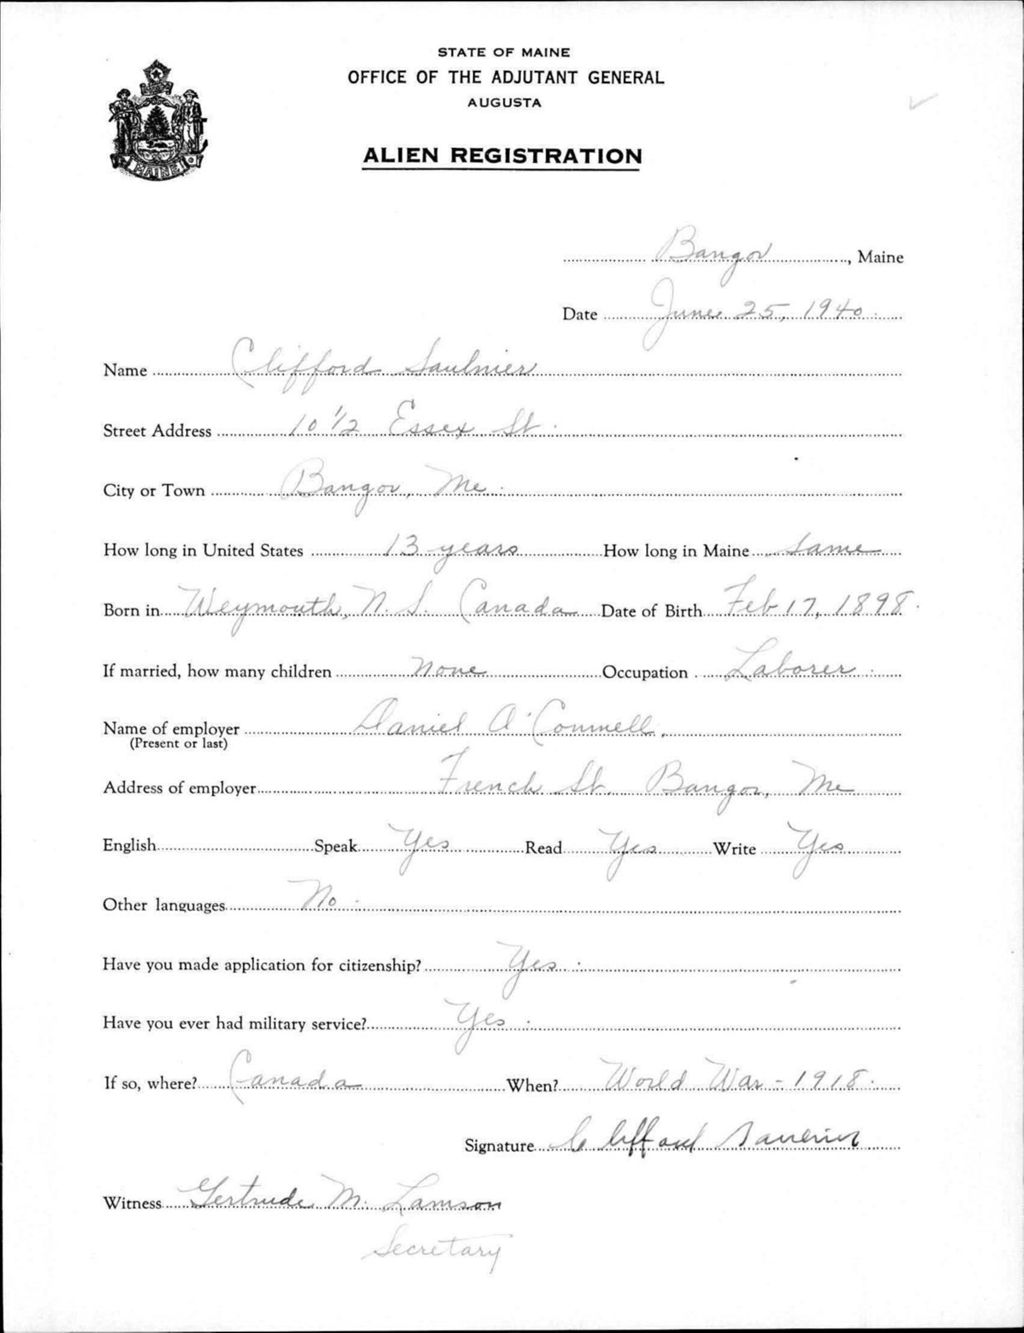 STATE OF MAINE
OFFICE OF THE ADJUTANT GENERAL
AUGUSTA
ALIEN REGISTRATION
MAINE
Bangor, Maine
Date June 25, 1940
Name Clifford Saulnier
Street Address 10 1/2 Essex St.
City or Town Bangor, Me.
How long in United States 13 years How long in Maine Same
Born in Weymouth, N. S. Canada Date of Birth Feb 17, 1898.
If married, how many children None Occupation Laborer.
Name of employer Daniel O'Connell.
(Present or last)
Address of employer French St. Bangor, Me
English Speak Yes Read Yes Write Yes
Other languages No.
Have you made application for citizenship? Yes.
Have you ever had military service? Yes.
If so, where? Canada When? World War - 1918.
Signature Clifford Saulnier
Witness Gertrude M. Lamson
Secretary